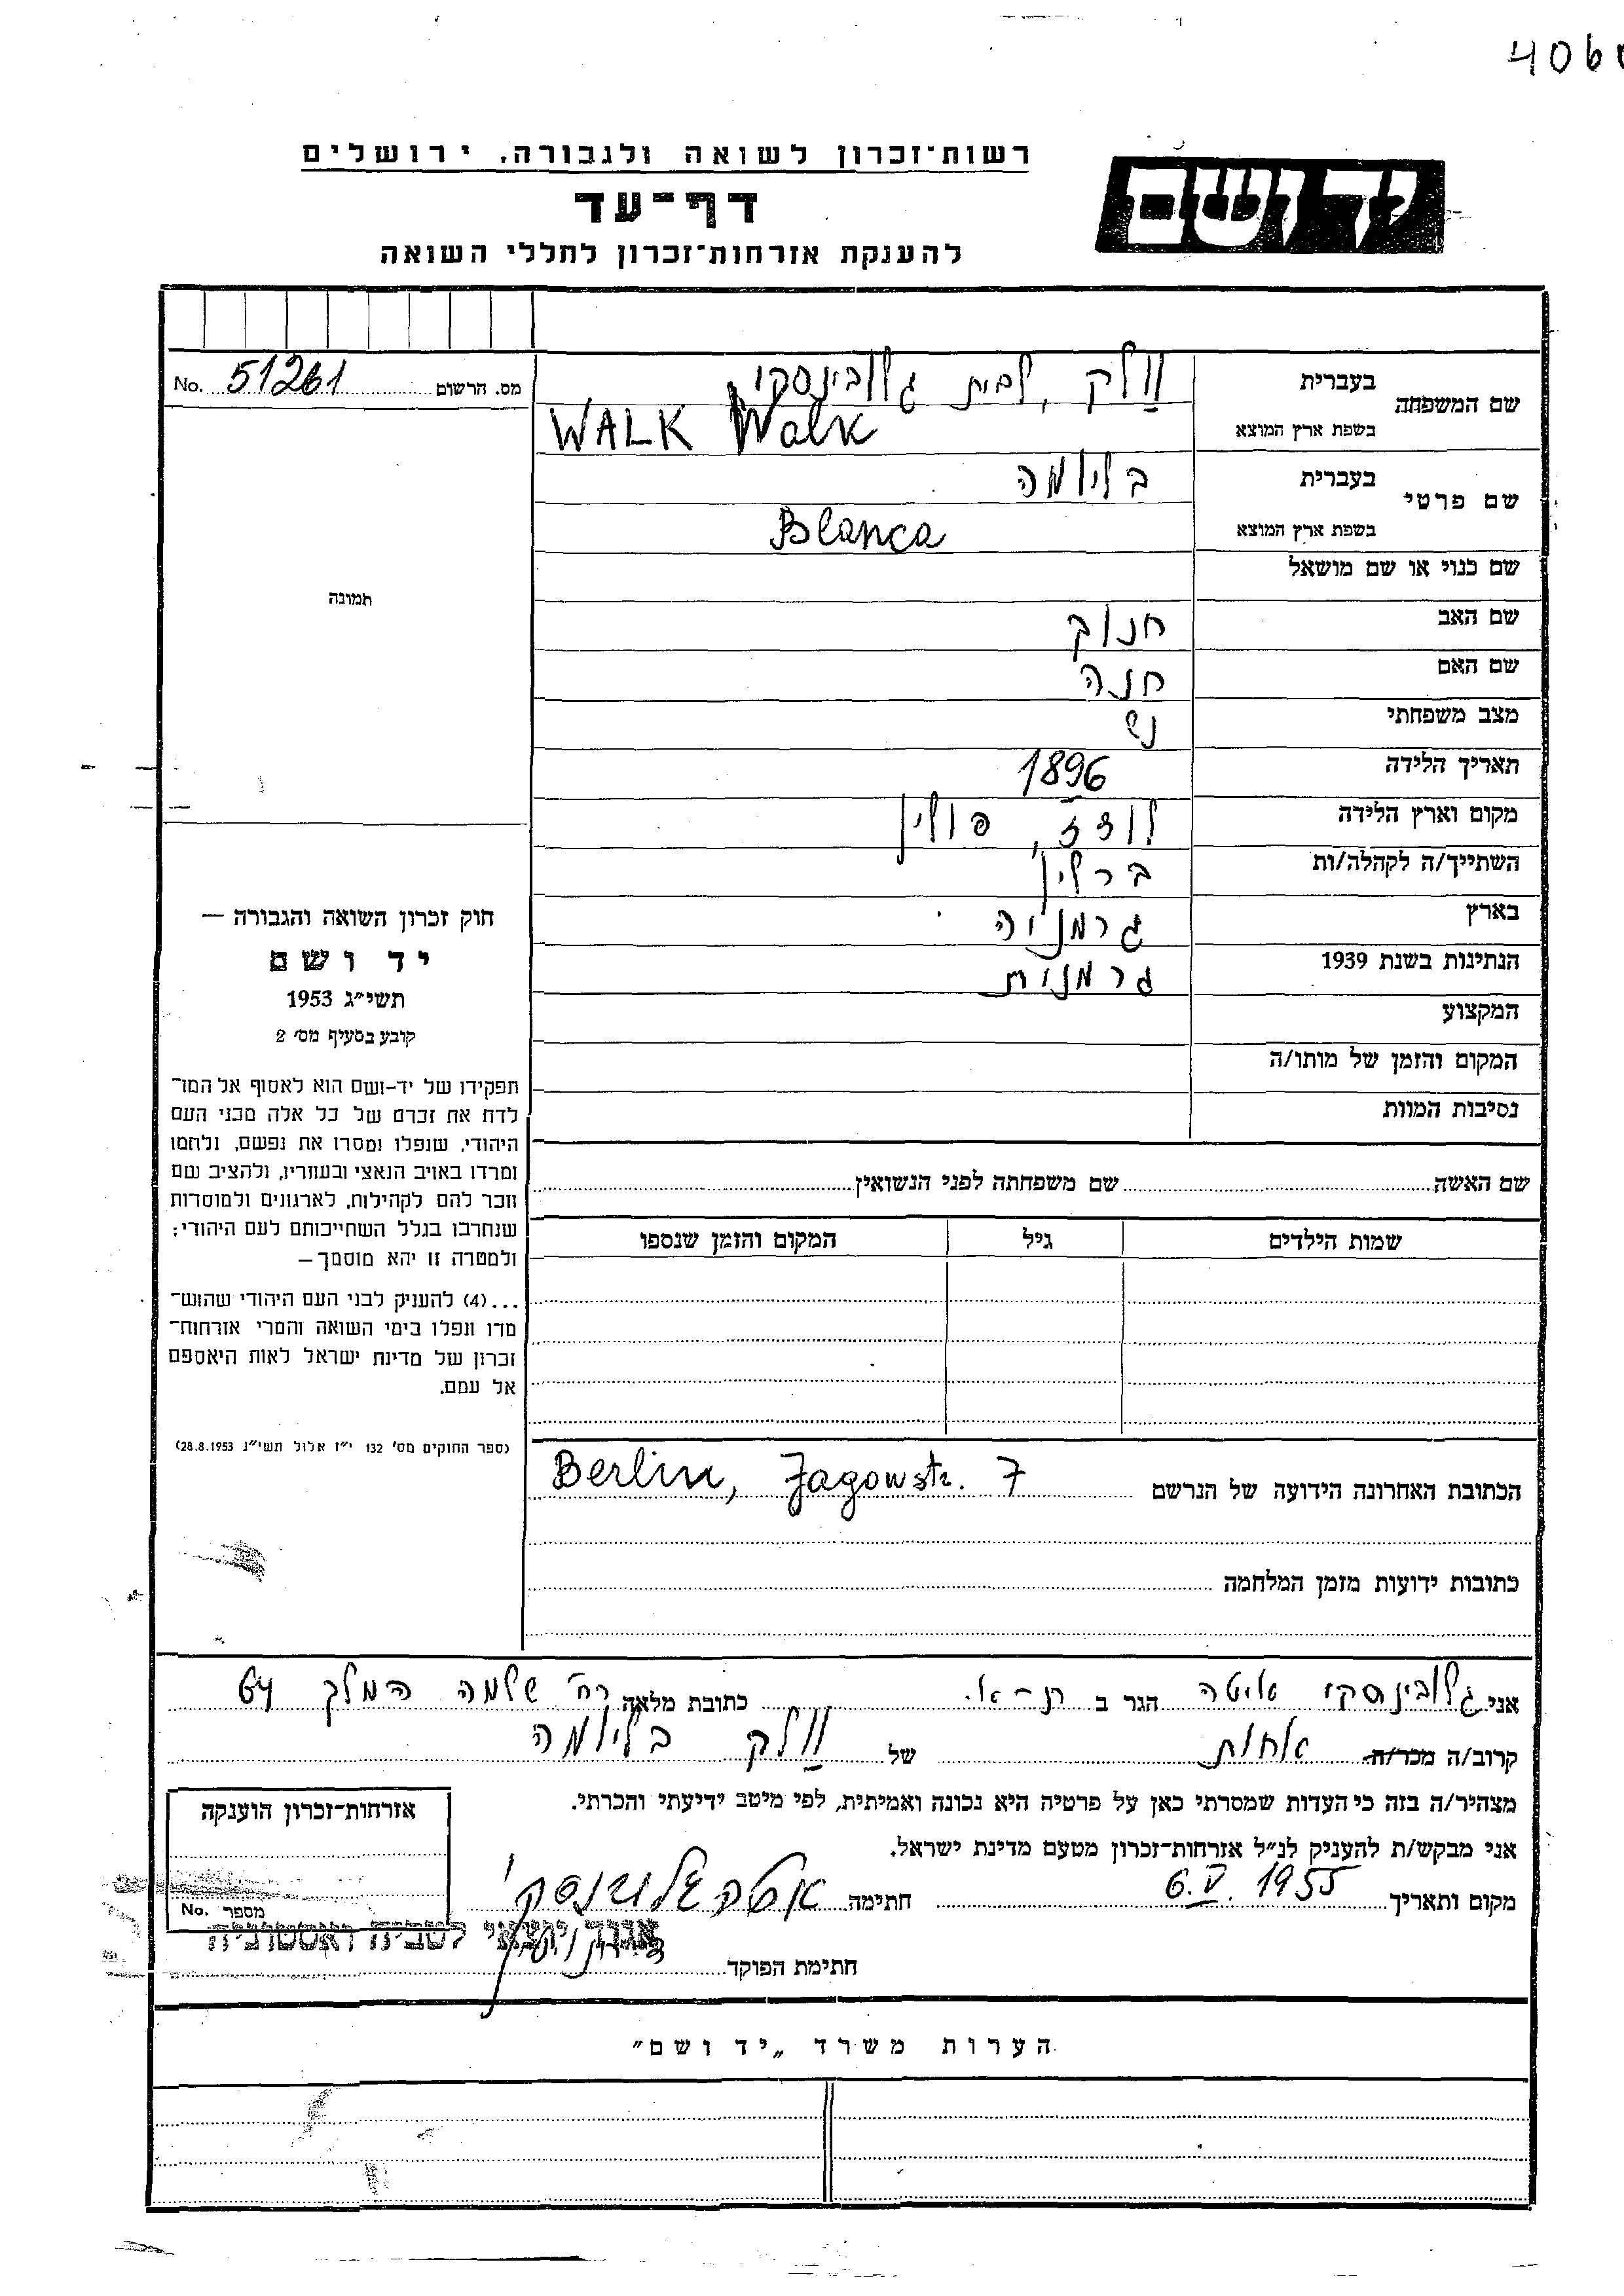 4060
רשות־זכרון לשואה ולגבורה, ירושלים
יד ושם
דף־עד
להענקת אזרחות־זכרון לחללי השואה
מס. הרשום 51261 No.
שם המשפחה
בעברית וַולק, לבית גלובינסקי
בשפת ארץ המוצא WALK Walk
שם פרטי
בעברית בלומה
בשפת ארץ המוצא Blanca
שם כנוי או שם מושאל
תמונה
שם האב חנוך
שם האם חנה
מצב משפחתי נש
תאריך הלידה 1896
מקום וארץ הלידה לודז, פולין
השתייך/ה לקהלה/ות ברלין
בארץ גרמניה
הנתינות בשנת 1939 גרמנית
המקצוע
המקום והזמן של מותו/ה
נסיבות המוות
חוק זכרון השואה והגבורה —
יד ושם
תשי״ג 1953
קובע בסעיף מס׳ 2
תפקידו של יד־ושם הוא לאסוף אל המו־
לדת את זכרם של כל אלה מבני העם
היהודי, שנפלו ומסרו את נפשם, נלחמו
ומרדו באויב הנאצי ובעוזריו, ולהציב שם
וזכר להם לקהילות, לארגונים ולמוסדות
שנחרבו בגלל השתייכותם לעם היהודי;
ולמטרה זו יהא מוסמך —
...(4) להעניק לבני העם היהודי שהוש־
מדו ונפלו בימי השואה והמרי אזרחות־
זכרון של מדינת ישראל לאות היאספם
אל עמם.
(ספר החוקים מס׳ 132 י״ז אלול תשי״ג 28.8.1953)
שם האשה שם משפחתה לפני הנשואין
שמות הילדים גיל המקום והזמן שנספו
הכתובת האחרונה הידועה של הנרשם Berlin, Jagowstr. 7
כתובות ידועות מזמן המלחמה
אני גלובינסקי איטה הגר ב ת־א. כתובת מלאה רח׳ שלמה המלך 64
קרוב/ה מכר/ה אחות של וַולק בלומה
מצהיר/ה בזה כי העדות שמסרתי כאן על פרטיה היא נכונה ואמיתית, לפי מיטב ידיעתי והכרתי.
אני מבקש/ת להעניק לנ״ל אזרחות־זכרון מטעם מדינת ישראל.
מקום ותאריך 6.V.1955 חתימה איטה גלובינסקי
אזרחות־זכרון הוענקה
מספר No.
אגוד יוצאי לטביה ואסטוניה
חתימת הפוקד
הערות משרד „יד ושם״